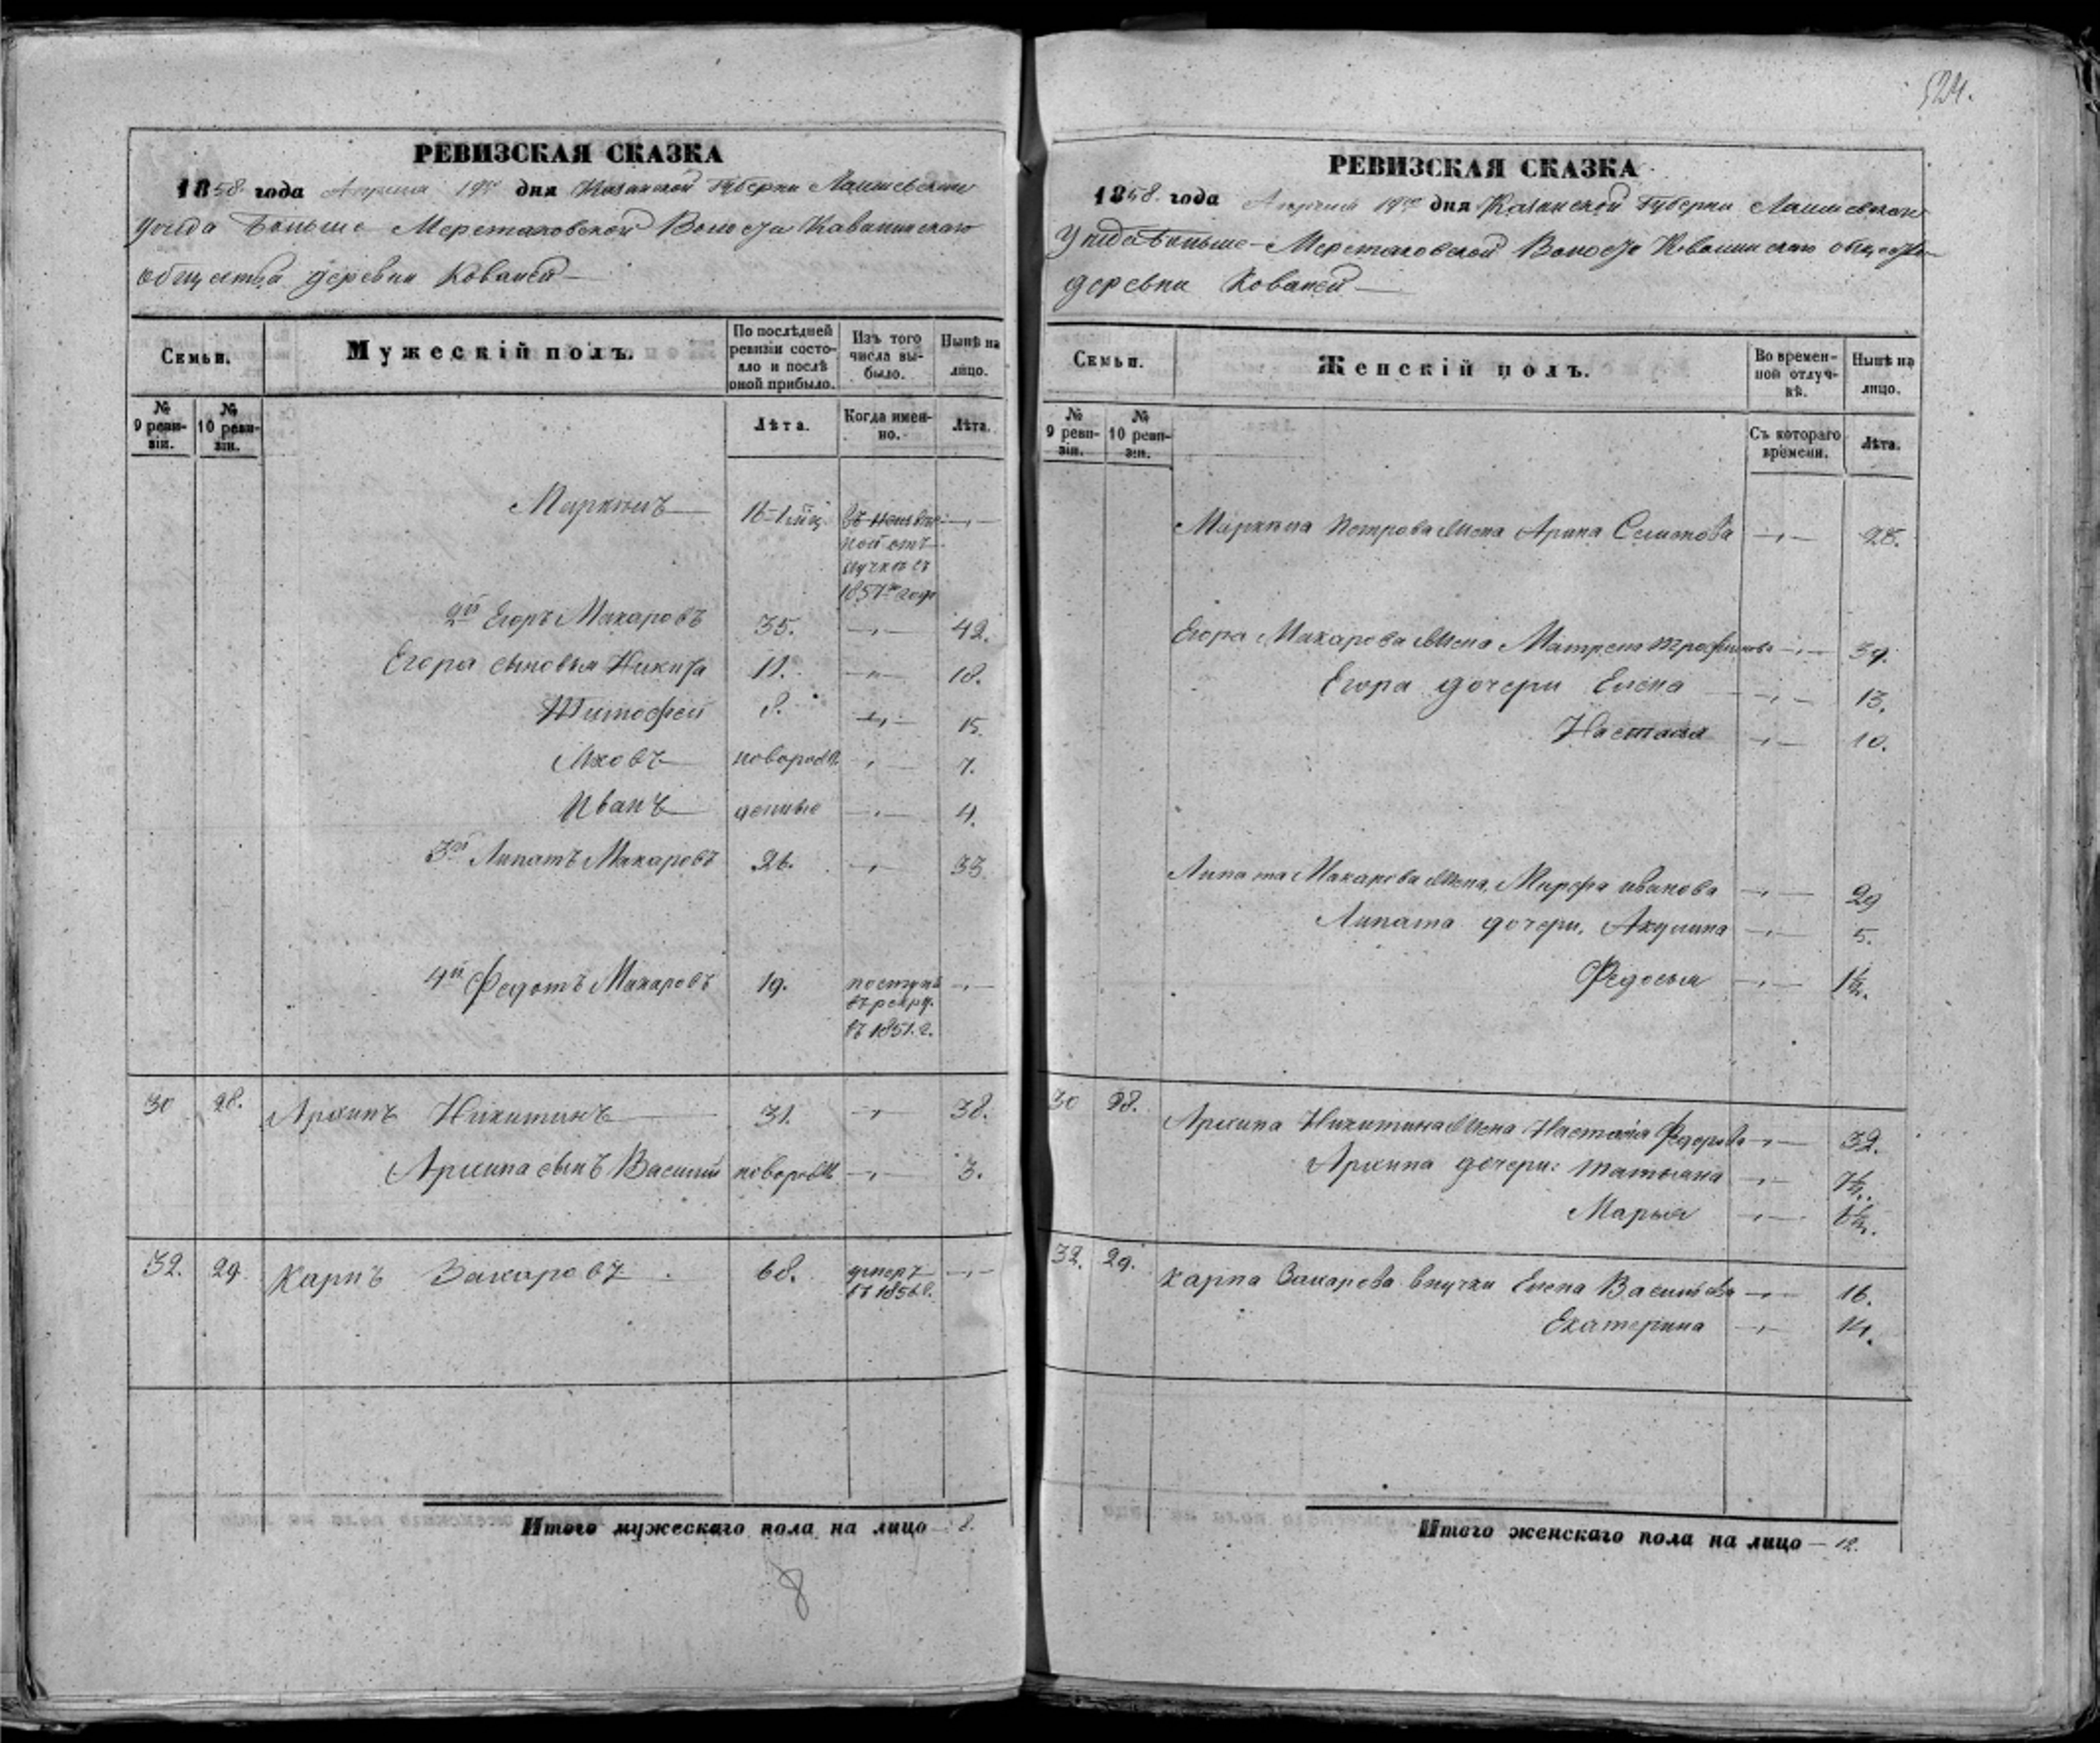 524.
РЕВИЗСКАЯ СКАЗКА
1858 года Апреля 19го дня Казанской Губерни Лаишевскаго
Уезда Больше-Меретяковской Волости
общества деревни Ковалей
Семьи.
Мужескій полъ.
По послѣдней ревизіи состояло и послѣ оной прибыло.
Изъ того числа выбыло.
Нынѣ на лицо.
№ 9 ревизіи.
№ 10 ревизіи.
Лѣта.
Когда именно.
Лѣта.
Маркелъ
въ неизвѣс-
ной от-
лучкѣ съ
1857го года
2й Егоръ Макаровъ 35. 42.
Егора сыновья Никита 11. 18.
Тимофей 8. 15.
Яковъ новорожд. 7.
Иванъ 4.
3й Липатъ Макаровъ 26. 33
4й Федотъ Макаровъ 19. поступ.
въ рекру.
въ 1851. г.
30 28. Архипъ Никитинъ 31. 38.
Архипа сынъ Василій новорожд. 3.
32. 29. Карпъ Захаровъ 68. умеръ
въ 1856 г.
Итого мужескаго пола на лицо 8.
8
РЕВИЗСКАЯ СКАЗКА
1858. года Апреля 19го дня Казанской Губерни Лаишевскаго
Уезда Больше-Меретяковской Волости общества
деревни Ковалей
Семьи.
Женскій полъ.
Во временной отлучкѣ.
Нынѣ на лицо.
№ 9 ревизіи.
№ 10 ревизіи.
Съ котораго времени.
Лѣта.
Петрова жена Арина Семенова 28.
Егора Макарова жена Матрена Трофимова 39.
Егора дочери Елена 13.
Настасья 10.
Липата Макарова жена Марфа иванова 29
Липата дочери, Акулина 5.
Федосья 1½.
30 28. Архипа Никитина жена Настасья Федорова 32.
Архипа дочери: Татьяна
Марья
32. 29. Карпа Захарова внучки Елена Васильева 16.
Екатерина 14.
Итого женскаго пола на лицо — 12.